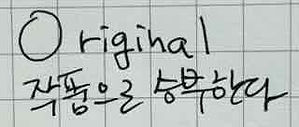 Original
작품으로 승부한다